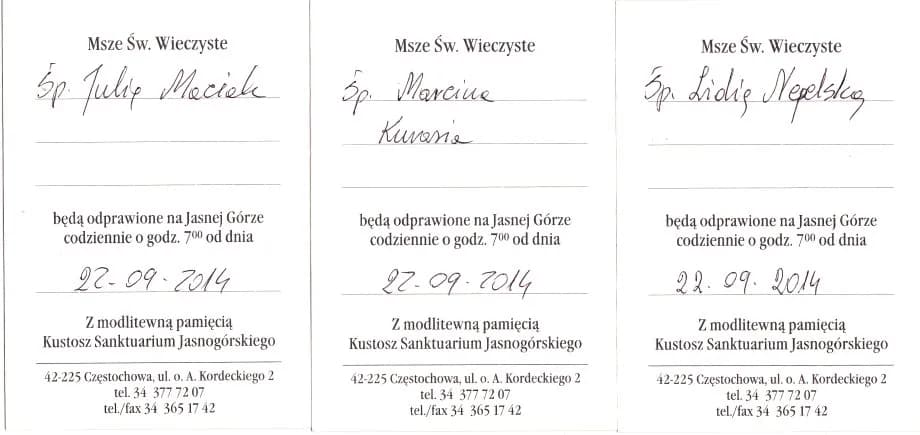 Msze Św. Wieczyste
Śp. Julię Maciak
będą odprawione na Jasnej Górze
codziennie o godz. 7⁰⁰ od dnia
22-09-2014
Z modlitewną pamięcią
Kustosz Sanktuarium Jasnogórskiego
42-225 Częstochowa, ul. o. A. Kordeckiego 2
tel. 34 377 72 07
tel./fax 34 365 17 42
Msze Św. Wieczyste
Śp. Marcina
będą odprawione na Jasnej Górze
codziennie o godz. 7⁰⁰ od dnia
22-09-2014
Z modlitewną pamięcią
Kustosz Sanktuarium Jasnogórskiego
42-225 Częstochowa, ul. o. A. Kordeckiego 2
tel. 34 377 72 07
tel./fax 34 365 17 42
Msze Św. Wieczyste
Śp. Lidię Nepelską
będą odprawione na Jasnej Górze
codziennie o godz. 7⁰⁰ od dnia
22.09.2014
Z modlitewną pamięcią
Kustosz Sanktuarium Jasnogórskiego
42-225 Częstochowa, ul. o. A. Kordeckiego 2
tel. 34 377 72 07
tel./fax 34 365 17 42